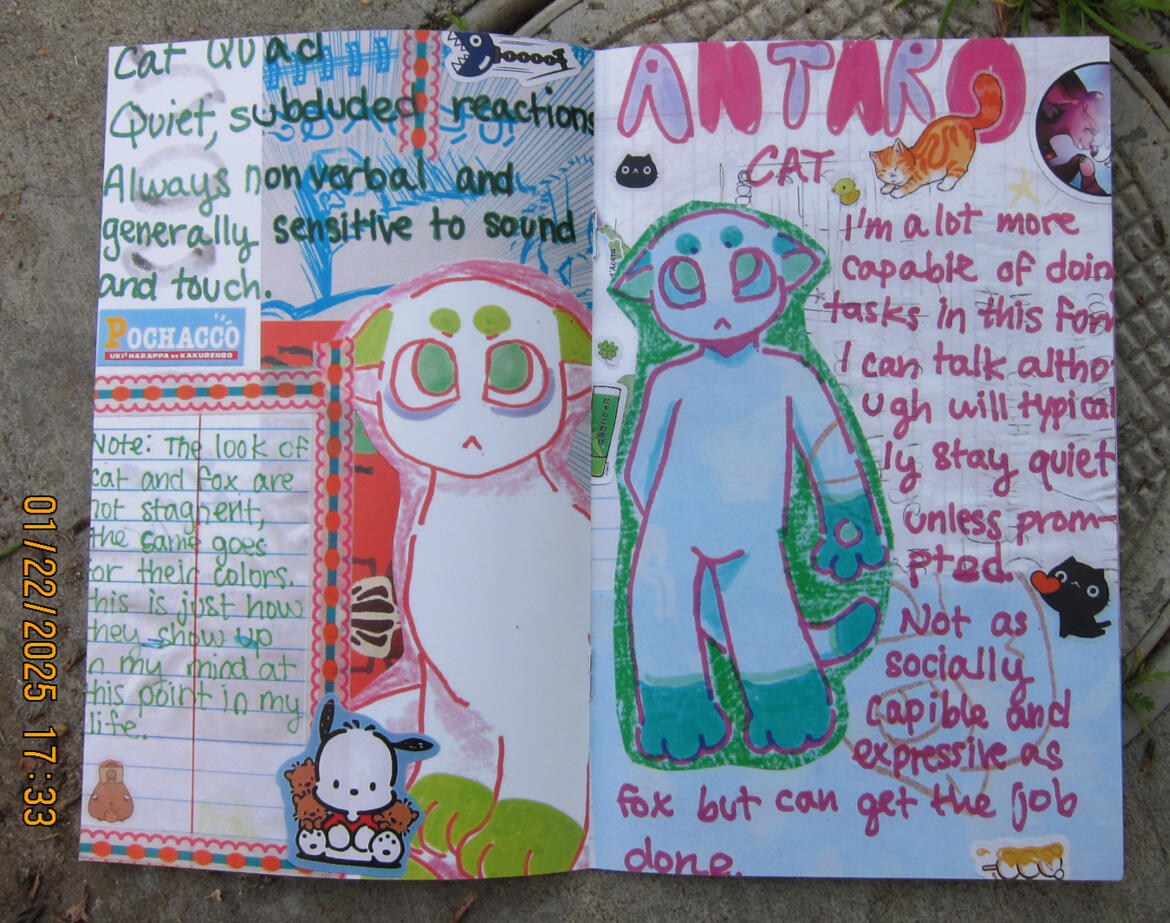 Cat Quad
Quiet, subduded reactions
Always nonverbal and
generally sensitive to sound
and touch.
POCHACCO
UKI²HARAPPA de KAKURENBO
Note: The look of
cat and fox are
not stagnent,
the same goes
for their colors.
this is just how
they show up
in my mind at
this point in my
life.
ANTHRO
CAT
I'm a lot more
capable of doin
tasks in this form
I can talk altho
ugh will typical
ly stay quiet
unless prom-
pted.
Not as
socially
capible and
expressive as
fox but can get the job
done.
01/22/2025 17:33